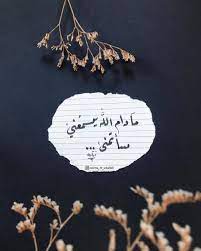 مادام الله يسمعني
سأتمنى ...